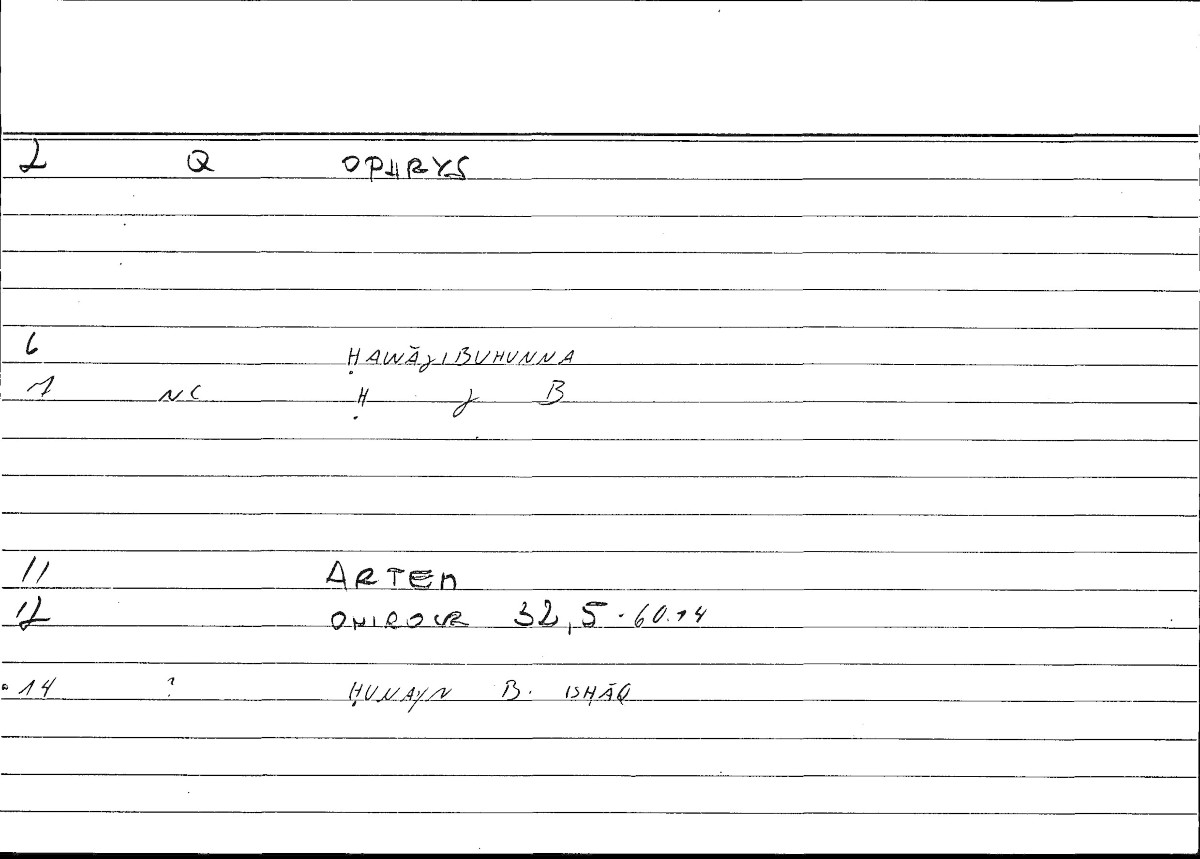 2 Q OPHRYS
6 ḤAWĀǧIBUHUNNA
7 NC Ḥ ǧ B
11 ARTEM
12 ONIROCR 32,5-60.14
14 ? ḤUNAYN B. ISḤĀQ